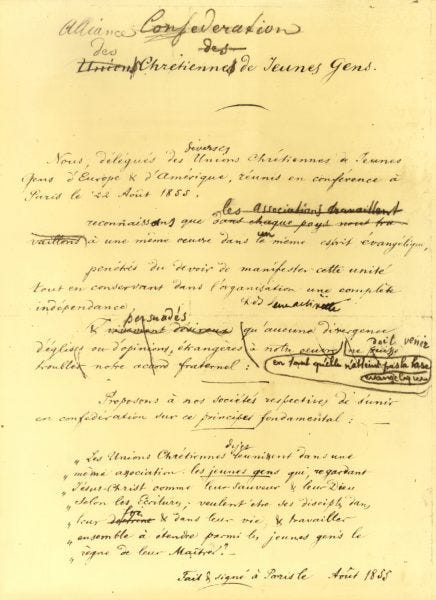 Alliance Confederation
des des
Unions Chrétiennes de Jeunes Gens.
diverses
Nous, délégués des Unions Chrétiennes de Jeunes
Gens d'Europe & d'Amérique, réunis en conférence à
Paris le 22 Août 1855.
les associations travaillent
reconnaissons que dans chaque pays nous tra
vaillons à une même œuvre dans un même esprit évangélique,
pénétrés du devoir de manifester cette unité
tout en conservant dans l'organisation une complète
indépendance
persuadés
& qu'aucune divergence doit venir
d'églises ou d'opinions, étrangères à notre œuvre ne puisse
troubler notre accord fraternel : en tant qu'elle n'atteint pas la base
évangélique
Proposons à nos Sociétés respectives de s'unir
en confédération sur ce principe fondamental :
„ Les Unions Chrétiennes réunissent dans une
„ même association les jeunes gens qui, regardant
„ Jésus-Christ comme leur Sauveur & leur Dieu
„ selon les Ecritures, veulent être ses disciples dans
foi
„ leur doctrine & dans leur vie & travailler
„ ensemble à étendre parmi les jeunes gens le
„ règne de leur Maître."
Fait & signé à Paris le Août 1855